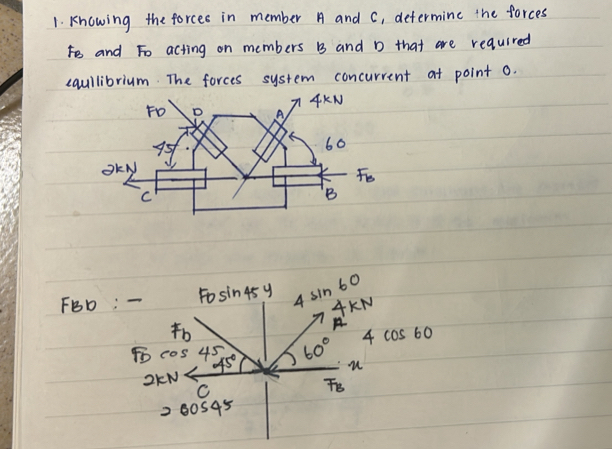 1. Knowing the forces in member A and C, determine the forces
FB and FD acting on members B and D that are required
equilibrium. The forces system concurrent at point O.
FD D A 4KN
45° 60
2KN FB
C B
FBD :-
FD sin 45 y 4 sin 60
Fb 4KN
A
FD cos 45 45° 60° 4 cos 60
2KN x
C FB
2 COS45